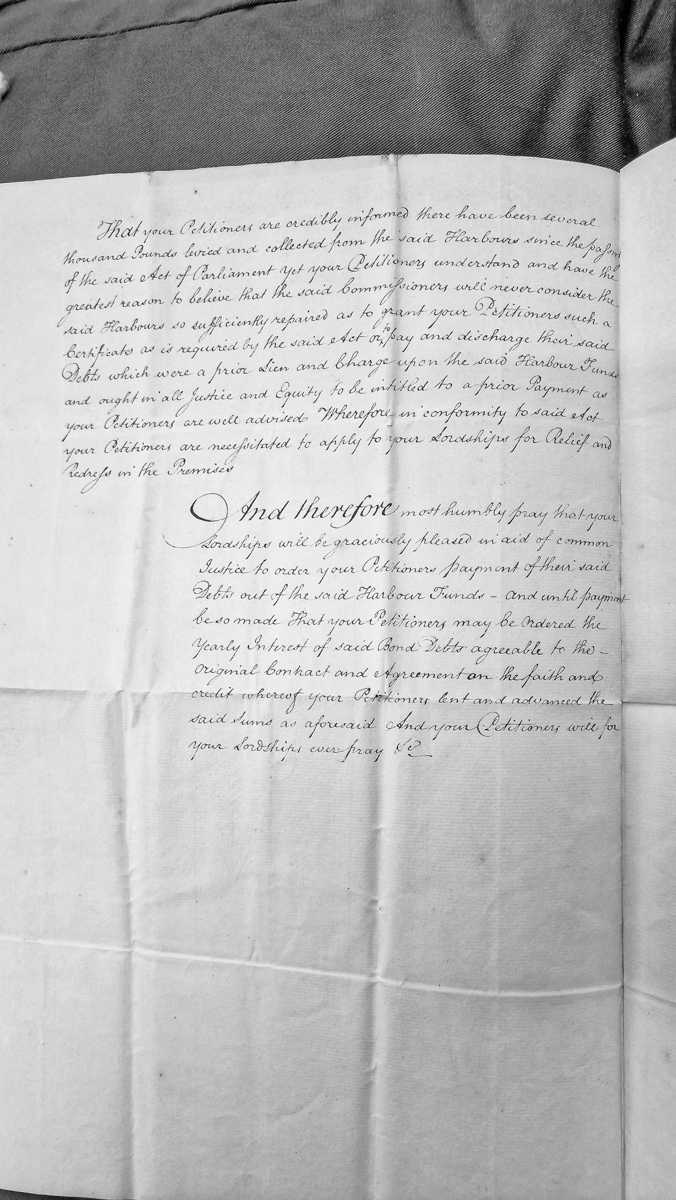 That your Petitioners are credibly informed there have been several
thousand Pounds levied and collected from the said Harbours since the passing
of the said Act of Parliament yet your Petitioners understand and have the
greatest reason to believe that the said Commissioners will never consider the
said Harbours so sufficiently repaired as to grant your Petitioners such a
Certificate as is required by the said Act or to pay and discharge their said
Debts which were a prior Lien and Charge upon the said Harbour Funds
and ought in all Justice and Equity to be intitled to a prior Payment as
your Petitioners are well advised Wherefore in conformity to said Act
your Petitioners are necessitated to apply to your Lordships for Relief and
Redress in the Premises
And therefore most humbly pray that your
Lordships will be graciously pleased in aid of common
Justice to order your Petitioners payment of their said
Debts out of the said Harbour Funds – and until payment
be so made That your Petitioners may be Ordered the
Yearly Interest of said Bond Debts agreeable to the –
Original Contract and Agreement on the faith and
credit whereof your Petitioners lent and advanced the
said Sums as aforesaid And your Petitioners will for
your Lordships ever pray &c